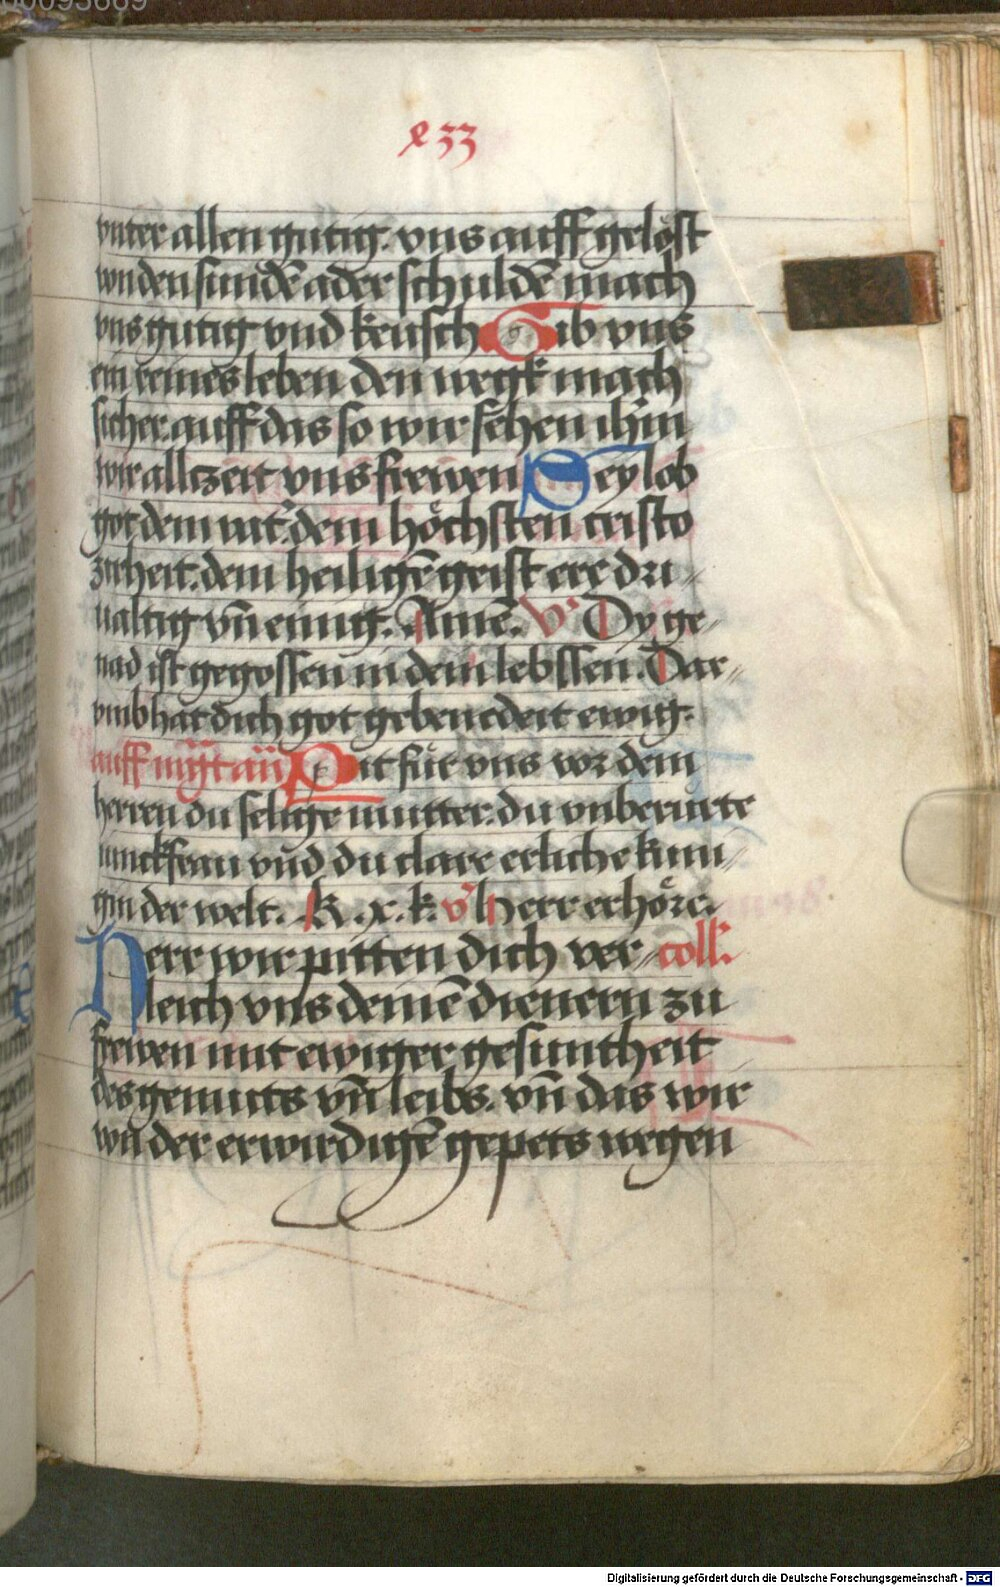 00093669
x33
vnter allen gutig. vns auff gelöst
von den sundē ader schuldē mach
vns gutig vnd keusch Gib vns
ein reines leben den wegk mach
sicher. auff das so wir sehen ihm̄
wir allczeit vns frewen Sey lob
got dem vat̄. dem höchsten cristo
zirheit. dem heiligē geist ere dri⸗
ualtig vn̄ einig. Amē. V̉ Dy ge⸗
nad ist gegossen in dein lebssen. Dar⸗
vmb hat dich got gebenedeit ewig.
auff mg̃t añ Pit für vns vor dem
herren du selige mutter. du vnberurte
iunckfrau vnd du clare erliche kuni⸗
gin der welt. K. x. k. v̉ herr erhöre.
Herr wir pitten dich ver⸗ coll̄.
leich vns deinē dienern zu
frewen mit ewiger gesuntheit
des gemuts vn̄ leibs. vn̄ das wir
von der erwirdigē gepets wegen
Digitalisierung gefördert durch die Deutsche Forschungsgemeinschaft - DFG